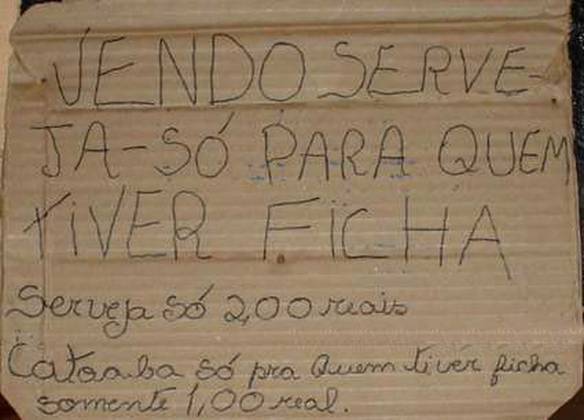 VENDO SERVE-
JA-SÓ PARA QUEM
TIVER FICHA
Serveja só 2,00 reais
Cataaba só pra quem tiver ficha
somente 1,00 real.